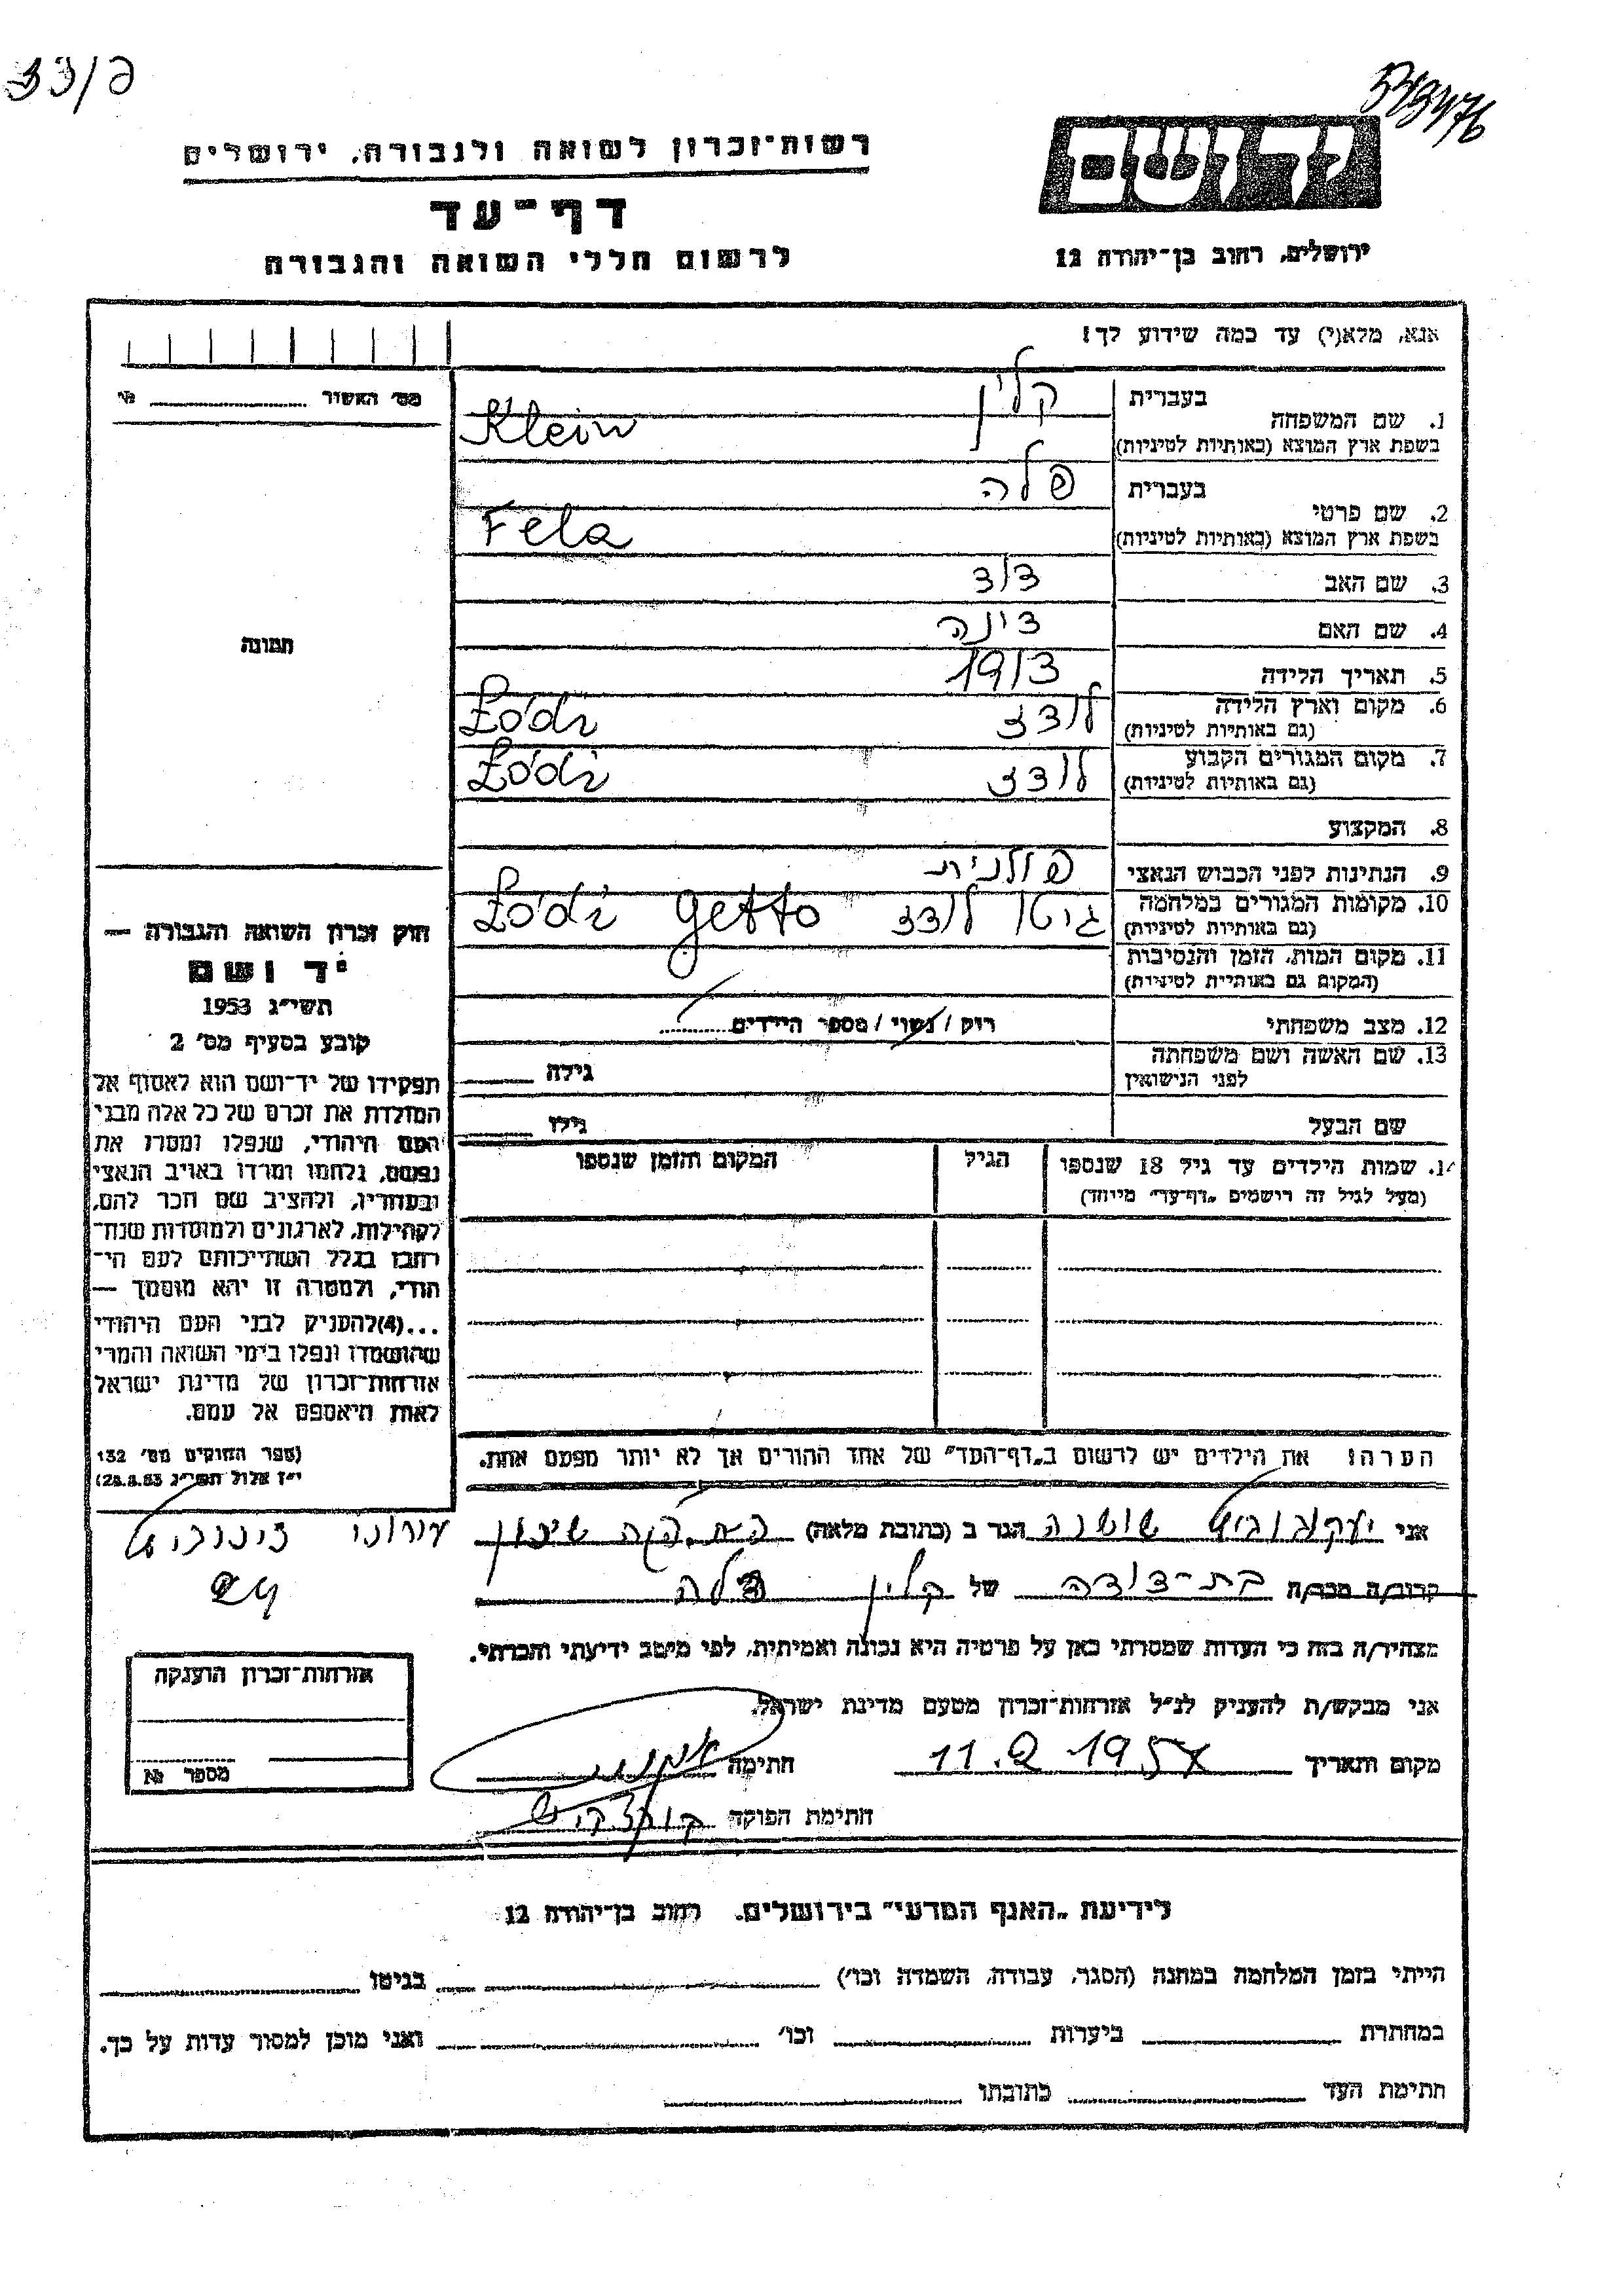 33/פ
רשות־זכרון לשואה ולגבורה, ירושלים
דף־עד
לרשום חללי השואה והגבורה
יד ושם
ירושלים, רחוב בן־יהודה 12
אנא, מלא(י) עד כמה שידוע לך!
מס׳ האשור № 
1. שם המשפחה
בעברית קלין
בשפת ארץ המוצא (באותיות לטיניות) Klein
2. שם פרטי
בעברית פלה
בשפת ארץ המוצא (באותיות לטיניות) Fela
3. שם האב דוד
4. שם האם דינה
5. תאריך הלידה 1913
6. מקום וארץ הלידה
(גם באותיות לטיניות) לודז Łódź
7. מקום המגורים הקבוע
(גם באותיות לטיניות) לודז Łódź
8. המקצוע
9. הנתינות לפני הכבוש הנאצי פולנית
10. מקומות המגורים במלחמה
(גם באותיות לטיניות) גיטו לודז Łódź getto
11. מקום המות, הזמן והנסיבות
(המקום גם באותיות לטיניות)
12. מצב משפחתי רוק / נשוי / מספר הילדים
13. שם האשה ושם משפחתה
לפני הנישואין גילה
שם הבעל גילו
14. שמות הילדים עד גיל 18 שנספו הגיל המקום והזמן שנספו
(מעל לגיל זה רושמים „דף־עד״ מיוחד)
הערה: את הילדים יש לרשום ב„דף־העד״ של אחד ההורים אך לא יותר מפעם אחת.
תמונה
חוק זכרון השואה והגבורה —
יד ושם
תשי״ג 1953
קובע בסעיף מס׳ 2
תפקידו של יד־ושם הוא לאסוף אל
המולדת את זכרם של כל אלה מבני
העם היהודי, שנפלו ומסרו את
נפשם, נלחמו ומרדו באויב הנאצי
ובעוזריו, ולהציב שם וזכר להם,
לקהילות, לארגונים ולמוסדות שנח־
רבו בגלל השתייכותם לעם הי־
הודי, ולמטרה זו יהא מוסמך —
...(4) להעניק לבני העם היהודי
שהושמדו ונפלו בימי השואה והמרי
אזרחות־זכרון של מדינת ישראל
לאות היאספם אל עמם.
(ספר החוקים מס׳ 132
י״ז אלול תשי״ג 28.8.53)
אני יעקובוביץ שושנה הגר ב (כתובת מלאה) שיכון
24
קרוב/ה מכר/ה בת־דודה של קלין פלה
מצהיר/ה בזה כי העדות שמסרתי כאן על פרטיה היא נכונה ואמיתית, לפי מיטב ידיעתי והכרתי.
אני מבקש/ת להעניק לנ״ל אזרחות־זכרון מטעם מדינת ישראל.
מקום ותאריך 11.2 1957 חתימה
חתימת הפוקד
אזרחות־זכרון הוענקה
מספר №
לידיעת „האגף המדעי״ בירושלים. רחוב בן־יהודה 12
הייתי בזמן המלחמה במחנה (הסגר, עבודה, השמדה וכו׳) בגיטו
במחתרת ביערות וכו׳ ואני מוכן למסור עדות על כך.
חתימת העד כתובתו